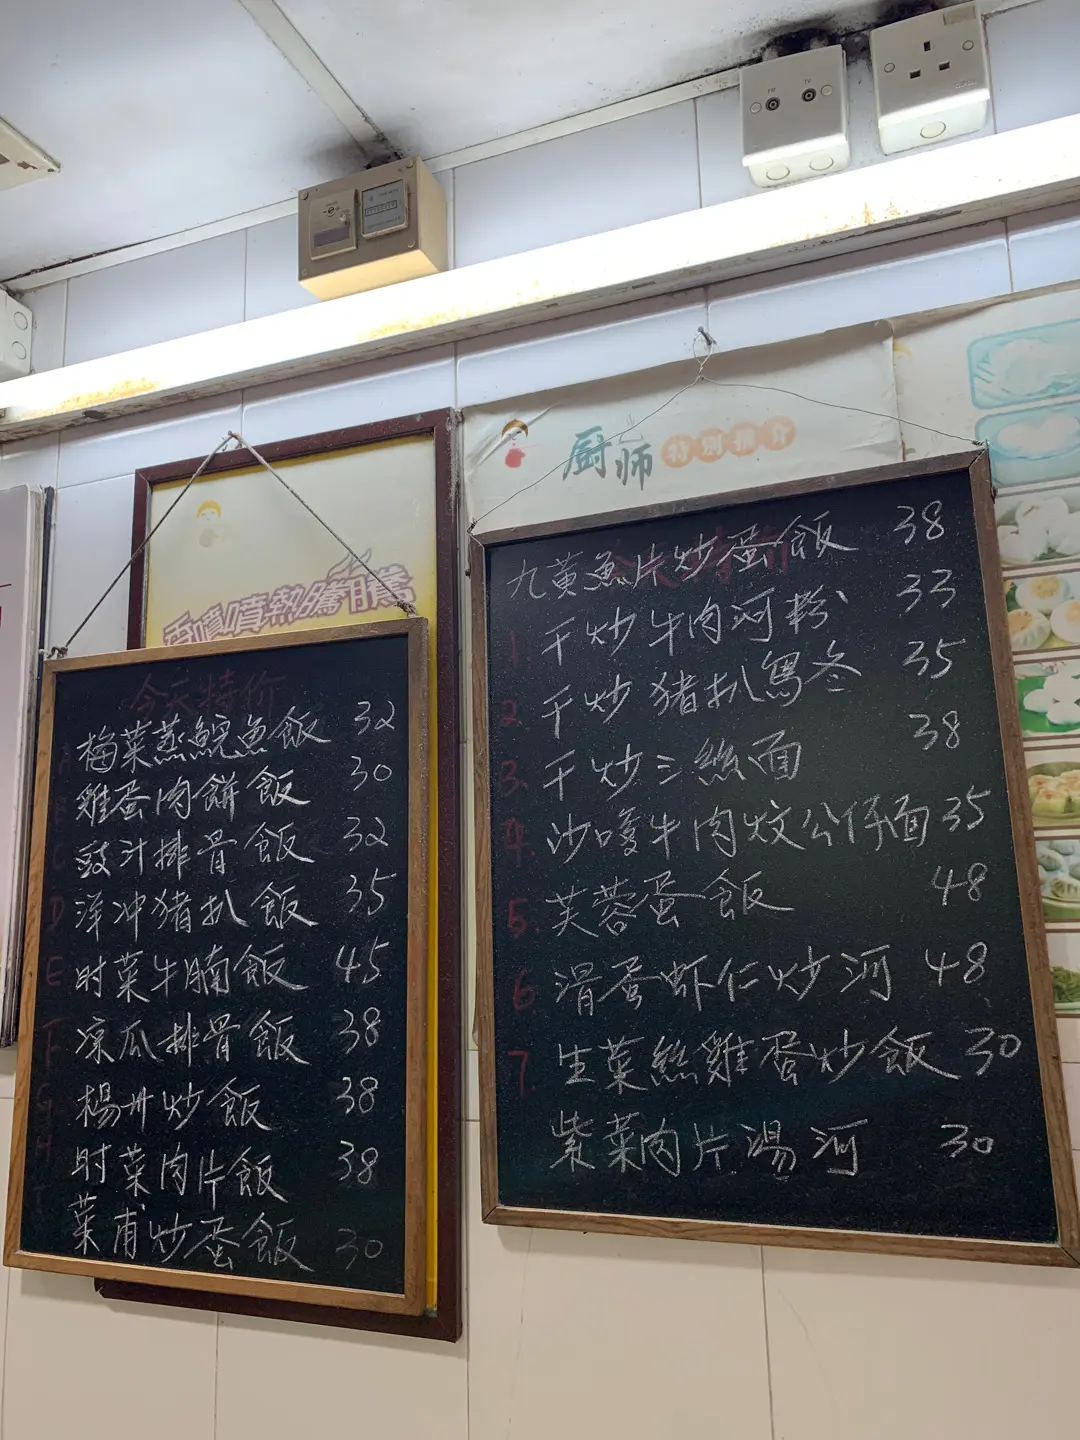 FM TV
厨师 特別推介
噴噴熱騰騰
今天特价
梅菜蒸鯇魚飯 32
雞蛋肉餅飯 30
豉汁排骨飯 32
D 洋冲猪扒飯 35
E 时菜牛腩飯 45
F 凉瓜排骨飯 38
G 楊卅炒飯 38
H 时菜肉片飯 38
菜甫炒蛋飯 30
九黄魚片炒蛋飯 38
1. 干炒牛肉河粉 33
2. 干炒猪扒烏冬 35
3. 干炒三絲面 38
4. 沙嗲牛肉炆公仔面 35
5. 芙蓉蛋飯 48
6. 滑蛋虾仁炒河 48
7. 生菜絲雞蛋炒飯 30
紫菜肉片湯河 30